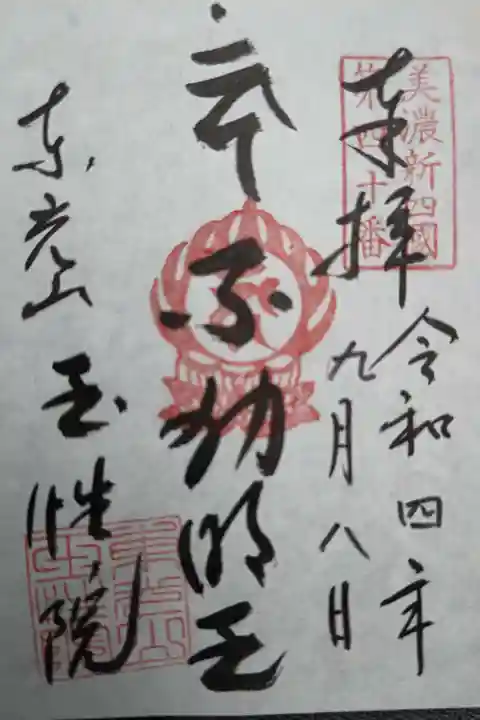 美濃新四國
第四十番
奉拝
令和四年
九月八日
不動明王
東光山 玉性院